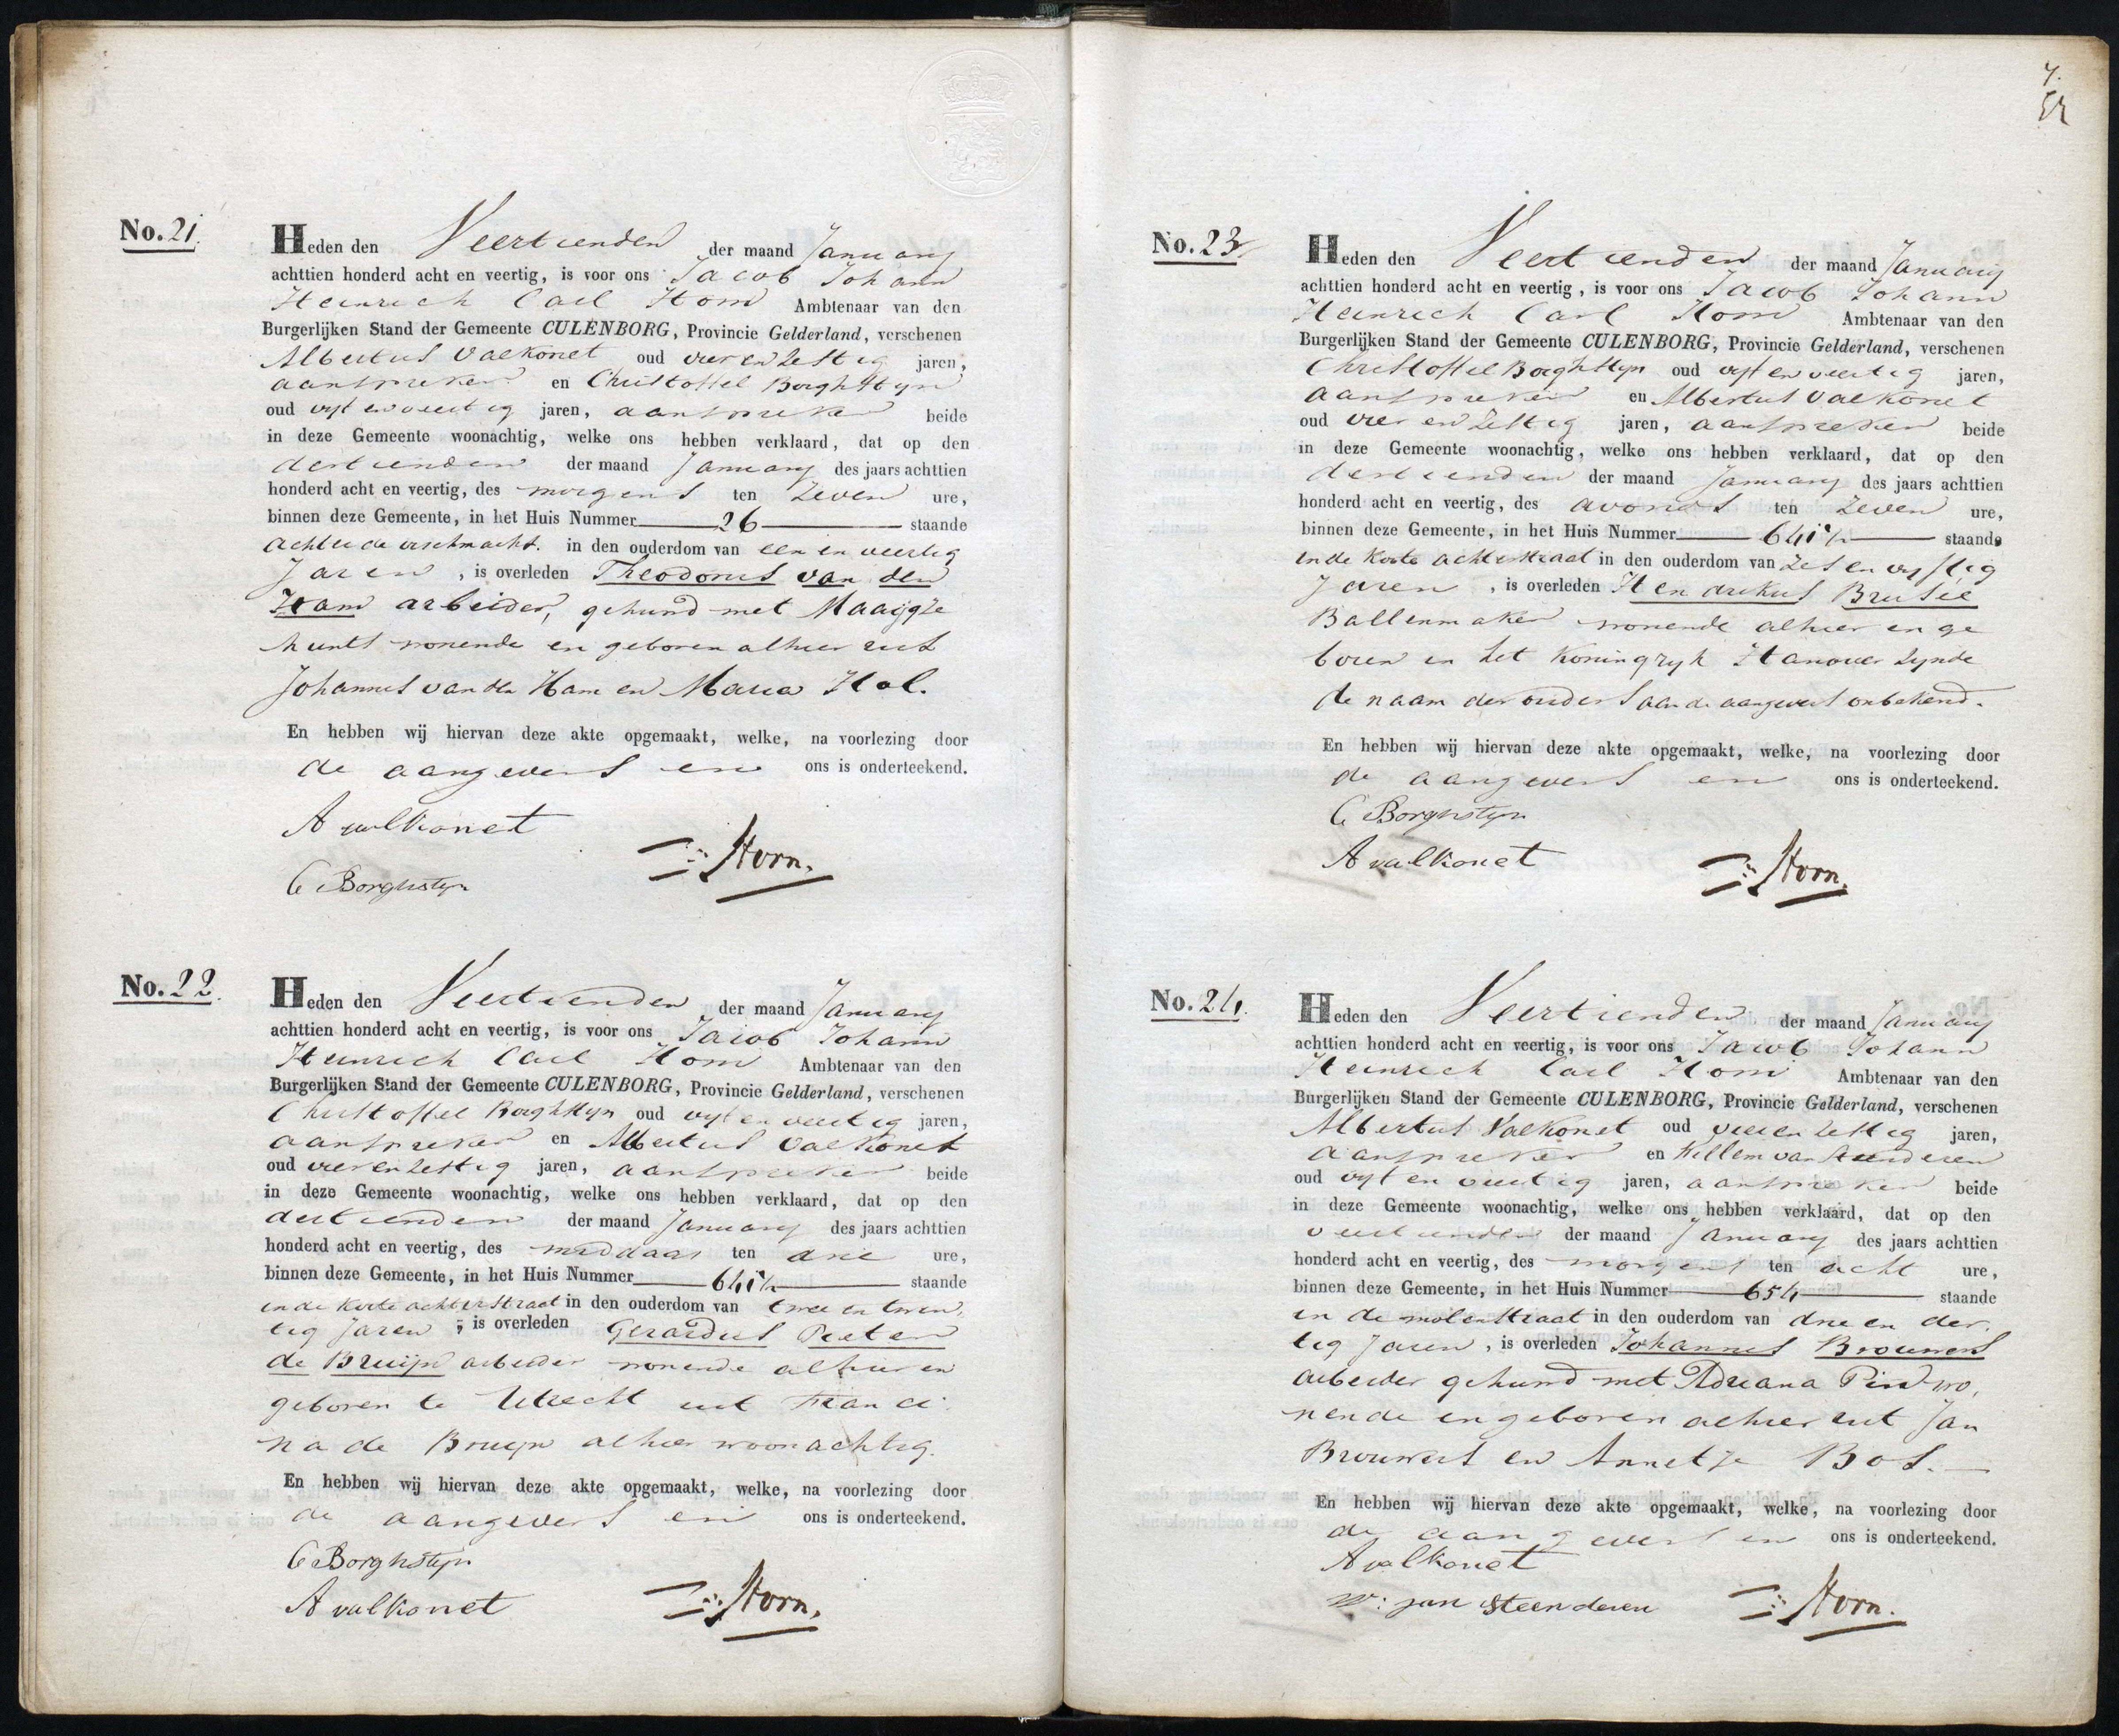 No. 21.
Heden den Veertienden der maand January
achttien honderd acht en veertig, is voor ons Jacob Johann
Heinrich Carl Horn Ambtenaar van den
Burgerlijken Stand der Gemeente CULENBORG, Provincie Gelderland, verschenen
Albertus Valkonet oud vier en Zestig jaren,
aanspreker en Christoffel Borghstyn
oud vyf en veertig jaren, aanspreker beide
in deze Gemeente woonachtig, welke ons hebben verklaard, dat op den
dertienden der maand January des jaars achttien
honderd acht en veertig, des morgens ten Zeven ure,
binnen deze Gemeente, in het Huis Nummer 26 staande
achter de vischmarkt. in den ouderdom van een en veertig
Jaren, is overleden Theodorus van den
Ham arbeider, gehuwd met Maaigje
wonende en geboren alhier uit
Johannes van den Ham en Maria Hol.
En hebben wij hiervan deze akte opgemaakt, welke, na voorlezing door
de aangevers en ons is onderteekend.
A valkonet
Horn.
C Borghstyn
No. 22.
Heden den Veertienden der maand January
achttien honderd acht en veertig, is voor ons Jacob Johann
Heinrich Carl Horn Ambtenaar van den
Burgerlijken Stand der Gemeente CULENBORG, Provincie Gelderland, verschenen
Christoffel Borghstyn oud vyf en veertig jaren,
aanspreker en Albertus Valkonet
oud vier en Zestig jaren, aanspreker beide
in deze Gemeente woonachtig, welke ons hebben verklaard, dat op den
dertienden der maand January des jaars achttien
honderd acht en veertig, des middags ten drie ure,
binnen deze Gemeente, in het Huis Nummer staande
in de Korte achterstraat in den ouderdom van twee en twin,
tig Jaren, is overleden Gerardus Pieter
de Bruijn arbeider wonende alhier en
geboren te Utrecht uit Franci,
na de Bruyn alhier woonachtig.
En hebben wij hiervan deze akte opgemaakt, welke, na voorlezing door
de aangevers en ons is onderteekend.
C Borghstyn
A valkonet
Horn.
7.
No. 23
Heden den Veertienden der maand January
achttien honderd acht en veertig, is voor ons Jacob Johann
Heinrich Carl Horn Ambtenaar van den
Burgerlijken Stand der Gemeente CULENBORG, Provincie Gelderland, verschenen
Christoffel Borghstyn oud vyf en veertig jaren,
aanspreker en Albertus Valkonet
oud vier en Zestig jaren, aanspreker beide
in deze Gemeente woonachtig, welke ons hebben verklaard, dat op den
dertienden der maand January des jaars achttien
honderd acht en veertig, des avonds ten Zeven ure,
binnen deze Gemeente, in het Huis Nummer staande
in de Korte achterstraat in den ouderdom van Zes en vyftig
Jaren, is overleden Hendrikus Brusie
Ballenmaker wonende alhier en ge
boren in het Koningryk Hanover Zynde
de naam der ouders aan de aangevers onbekend.
En hebben wij hiervan deze akte opgemaakt, welke, na voorlezing door
de aangevers en ons is onderteekend.
C Borghstyn
A valkonet
Horn.
No. 24.
Heden den Veertienden der maand January
achttien honderd acht en veertig, is voor ons Jacob Johann
Heinrich Carl Horn Ambtenaar van den
Burgerlijken Stand der Gemeente CULENBORG, Provincie Gelderland, verschenen
Albertus Valkonet oud vier en Zestig jaren,
aanspreker en Willem van Steenderen
oud vyf en veertig jaren, aanspreker beide
in deze Gemeente woonachtig, welke ons hebben verklaard, dat op den
veertienden der maand January des jaars achttien
honderd acht en veertig, des morgens ten acht ure,
binnen deze Gemeente, in het Huis Nummer 654 staande
in de molenstraat in den ouderdom van drie en der,
tig Jaren, is overleden Johannes Brouwers
arbeider gehuwd met Adriana Pin wo,
nende en geboren alhier uit Jan
Brouwers en Annetje Bos.
En hebben wij hiervan deze akte opgemaakt, welke, na voorlezing door
de aangevers en ons is onderteekend.
A valkonet
W: van Steenderen
Horn.